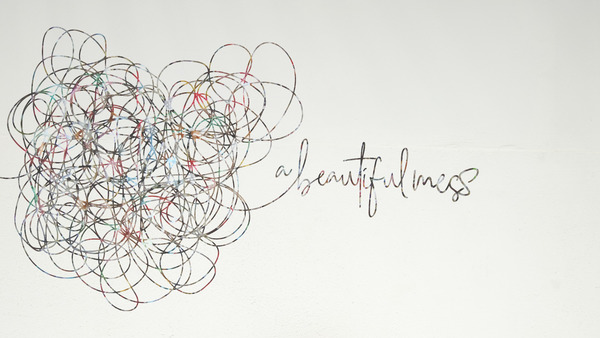 a beautiful mess